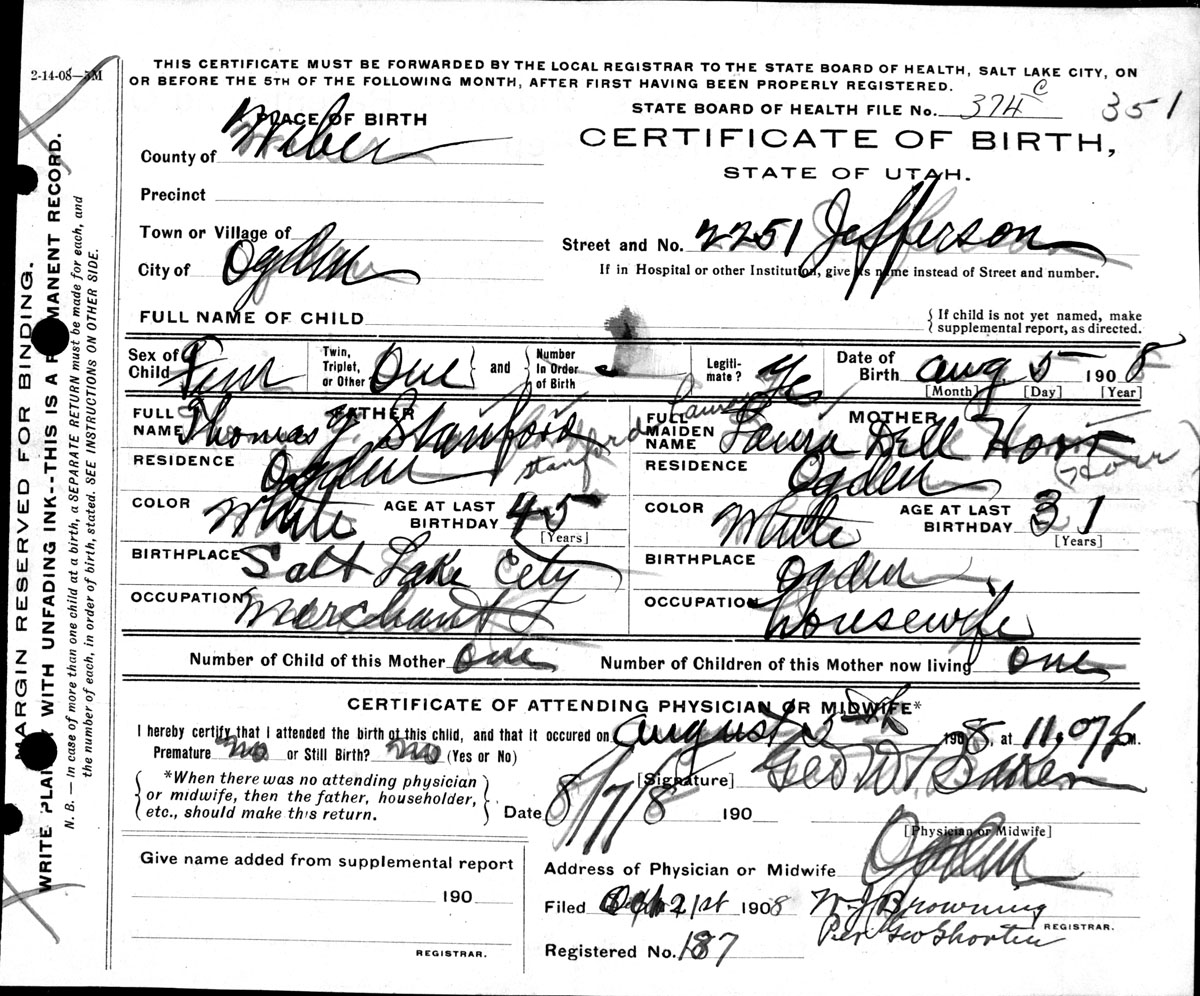 2-14-08—5M
THIS CERTIFICATE MUST BE FORWARDED BY THE LOCAL REGISTRAR TO THE STATE BOARD OF HEALTH, SALT LAKE CITY, ON
OR BEFORE THE 5TH OF THE FOLLOWING MONTH, AFTER FIRST HAVING BEEN PROPERLY REGISTERED.
STATE BOARD OF HEALTH FILE No. 374 C 351
PLACE OF BIRTH
CERTIFICATE OF BIRTH,
STATE OF UTAH.
County of Weber
Precinct
Town or Village of
Street and No. 2251 Jefferson
City of Ogden
If in Hospital or other Institution, give its name instead of Street and number.
FULL NAME OF CHILD
{ If child is not yet named, make
supplemental report, as directed.
Sex of Child Fem
Twin, Triplet, or Other One } and { Number In Order of Birth
Legiti-mate? Yes
Date of Birth Aug 5 1908
[Month] [Day] [Year]
FATHER
FULL NAME Thomas Y. Stanford
Stanford
RESIDENCE Ogden
COLOR White AGE AT LAST BIRTHDAY 45
[Years]
BIRTHPLACE Salt Lake City
OCCUPATION Merchant
MOTHER
FULL MAIDEN NAME Laura Dell
RESIDENCE Ogden
COLOR White AGE AT LAST BIRTHDAY 31
[Years]
BIRTHPLACE Ogden
OCCUPATION housewife
Number of Child of this Mother one Number of Children of this Mother now living one
CERTIFICATE OF ATTENDING PHYSICIAN OR MIDWIFE*
I hereby certify that I attended the birth of this child, and that it occured on August 5th 1908, at 11,07 p M.
Premature no or Still Birth? no (Yes or No)
[Signature] Geo W.
*When there was no attending physician
or midwife, then the father, householder,
etc., should make this return.
Date 8/7/8 190
[Physician or Midwife]
Give name added from supplemental report
190
REGISTRAR.
Address of Physician or Midwife Ogden
Filed 21st 1908 Browning
REGISTRAR.
Per Geo
Registered No. 187
MARGIN RESERVED FOR BINDING.
WRITE PLAIN WITH UNFADING INK--THIS IS A PERMANENT RECORD.
N. B. — In case of more than one child at a birth, a SEPARATE RETURN must be made for each, and
the number of each, in order of birth, stated. SEE INSTRUCTIONS ON OTHER SIDE.